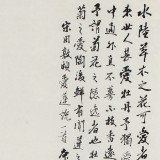 水陸草木之花可愛
来世人甚愛牡丹予獨
中通外直不蔓不枝香遠
予謂菊花之隱逸者也牡
菊之愛陶後鮮有聞蓮
宋周敦頤愛蓮説一首